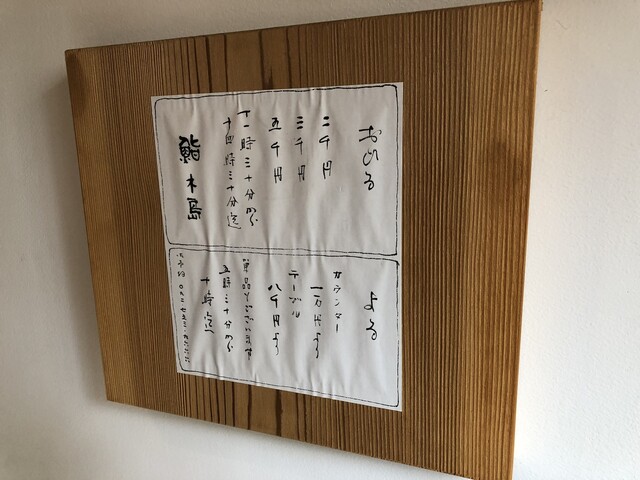 おひる
二千円
三千円
五千円
十一時三十分から
十四時三十分迄
鮨木島
よる
カウンター
一万円より
テーブル
八千円より
単品もございます
五時三十分から
十時迄